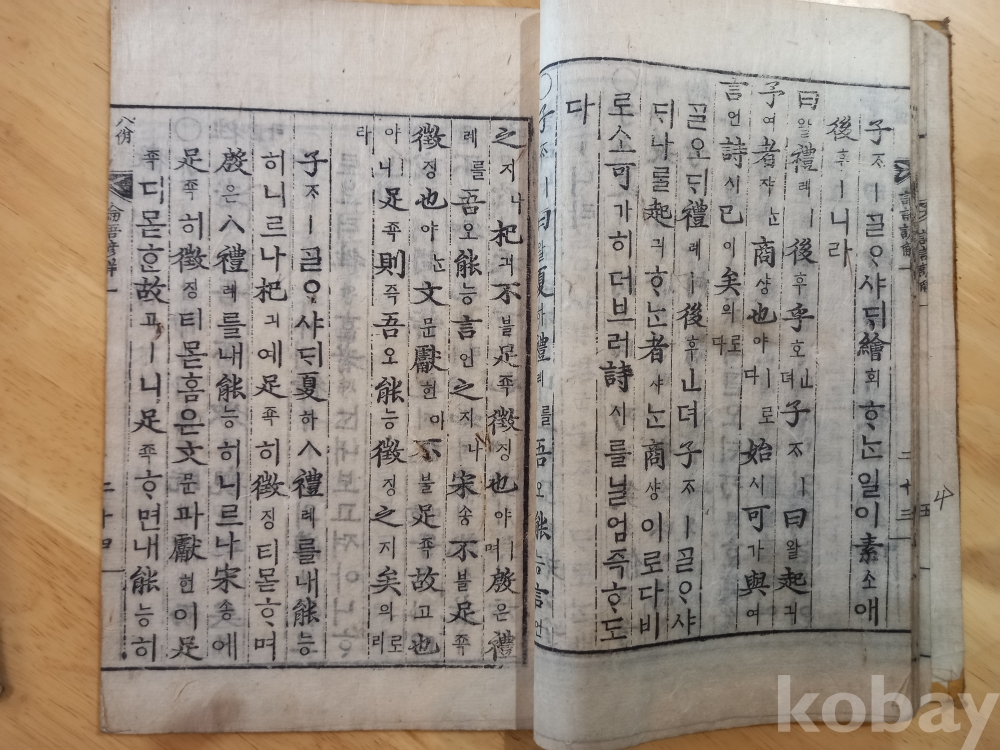 論語諺解一 二十三
子ᄌᆞㅣᄀᆞᆯᄋᆞ샤ᄃᆡ繪회ᄒᆞᄂᆞᆫ일이素소애
後후ㅣ니라
曰왈禮례ㅣ後후乎호ㅣᆫ뎌子ᄌᆞㅣ曰왈起긔
予여者쟈ᄂᆞᆫ商샹也야ㅣ로다始시可가與여
言언詩시已이矣의로다
ᄀᆞᆯ오ᄃᆡ禮례ㅣ後후ㅣᆫ뎌子ᄌᆞㅣᄀᆞᆯᄋᆞ샤
ᄃᆡ나ᄅᆞᆯ起긔ᄒᆞᄂᆞᆫ者쟈ᄂᆞᆫ商샹이로다비
로소可가히더브러詩시를닐엄즉ᄒᆞ도
다
○子ᄌᆞㅣ曰왈夏하禮례를吾오能능言언
之지나杞긔不블足족徵징也야ㅣ며殷은禮
례를吾오能능言언之지나宋송不블足족
徵징也야ᄂᆞᆫ文문獻헌이不블足족故고也
야ㅣ니足족則즉吾오能능徵징之지矣의로리라
子ᄌᆞㅣᄀᆞᆯᄋᆞ샤ᄃᆡ夏하ㅅ禮례를내能능
히니르나杞긔예足족히徵징티몯ᄒᆞ며
殷은ㅅ禮례를내能능히니르나宋송에
足족히徵징티몯홈은文문과獻헌이足
족디몯ᄒᆞᆫ故고ㅣ니足족ᄒᆞ면내能능히
八佾 論語諺解一 二十四
kobay